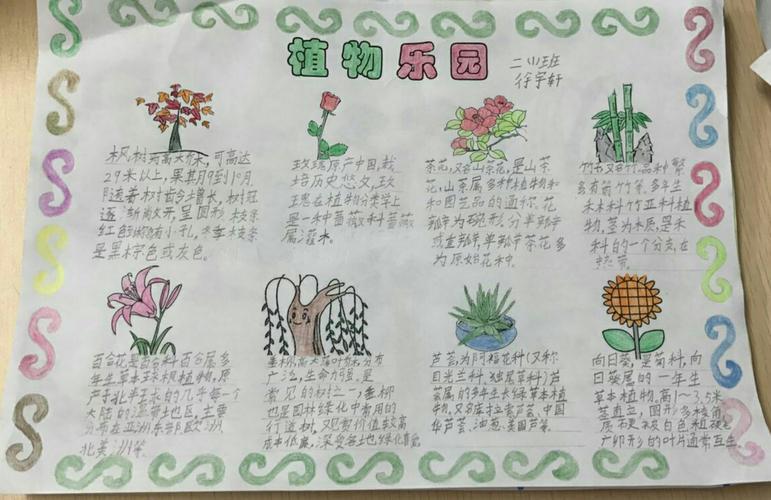 植物乐园
二(1)班
徐宇轩
枫树为高大乔木,可高达
29米以上,果其月9到10月
随着树龄增长,树冠
逐渐敞开,呈圆形 枝条
红色有小孔,冬季枝条
是黑棕色或灰色。
玫瑰原产中国,栽
培历史悠久,玫
瑰在植物分类学上
是一种蔷薇科蔷薇
属灌木。
茶花,又名山茶花,是山茶
花,山茶属多种植物和
和园艺品的通称,花
瓣为碗形,分单瓣
或重瓣,单瓣茶花多
为原始花种。
竹 又名竹,品种繁
多有箭竹等,多年生
禾本科竹亚科植
物,茎为木质,是禾
科的一个分支,在
热带。
百合花是百合科百合属多
年生草本球根植物,原
产于北半球的几乎每一个
大陆的温带地区,主要
分布在亚洲东部欧洲
北美洲等。
垂柳,高大落叶乔木,分布
广泛,生命力强,是
常见的树之一,垂柳
也是园林绿化中常用的
行道树,观赏价值较高
成本低廉,深受各地绿化喜爱
芦荟,为阿福花科(又称
日光兰科、独尾草科)芦
荟属的多年生常绿草本植
物,又名库拉索芦荟、中国
华芦荟、油葱、美国芦荟。
向日葵,是菊科,向
日葵属的一年生
草本植物,高1~3.5米
茎直立,圆形多棱角
质硬被白色粗硬毛
广卵形的叶片通常互生